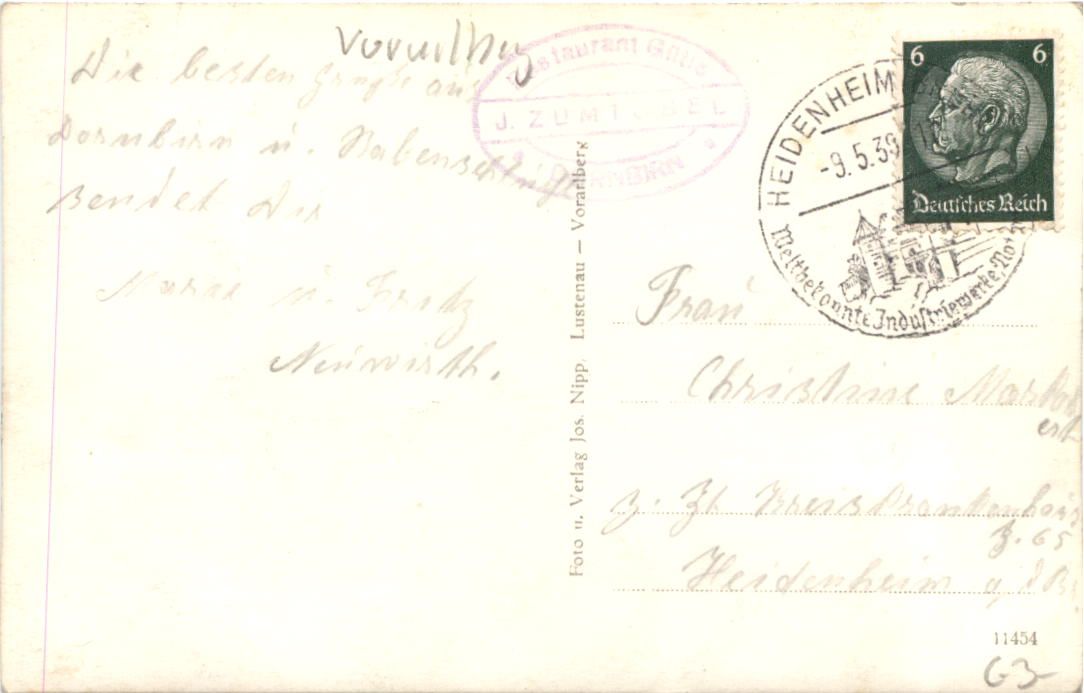 Vorarlberg
Die besten Grüße aus
Dornbirn u.
sendet Dir
u. Fritz
Neuwirth.
Restaurant
J. ZUMTOBEL
DORNBIRN
Foto u. Verlag Jos. Nipp, Lustenau – Vorarlberg
HEIDENHEIM
-9.5.39
Weltbekannte Industriewerke,
6 6
Deutsches Reich
Frau
Christine
z. Zt Kreiskrankenhaus
Z. 65
Heidenheim a. d. Br.
11454
63-